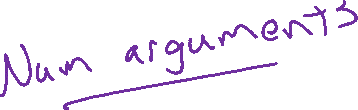 Num arguments